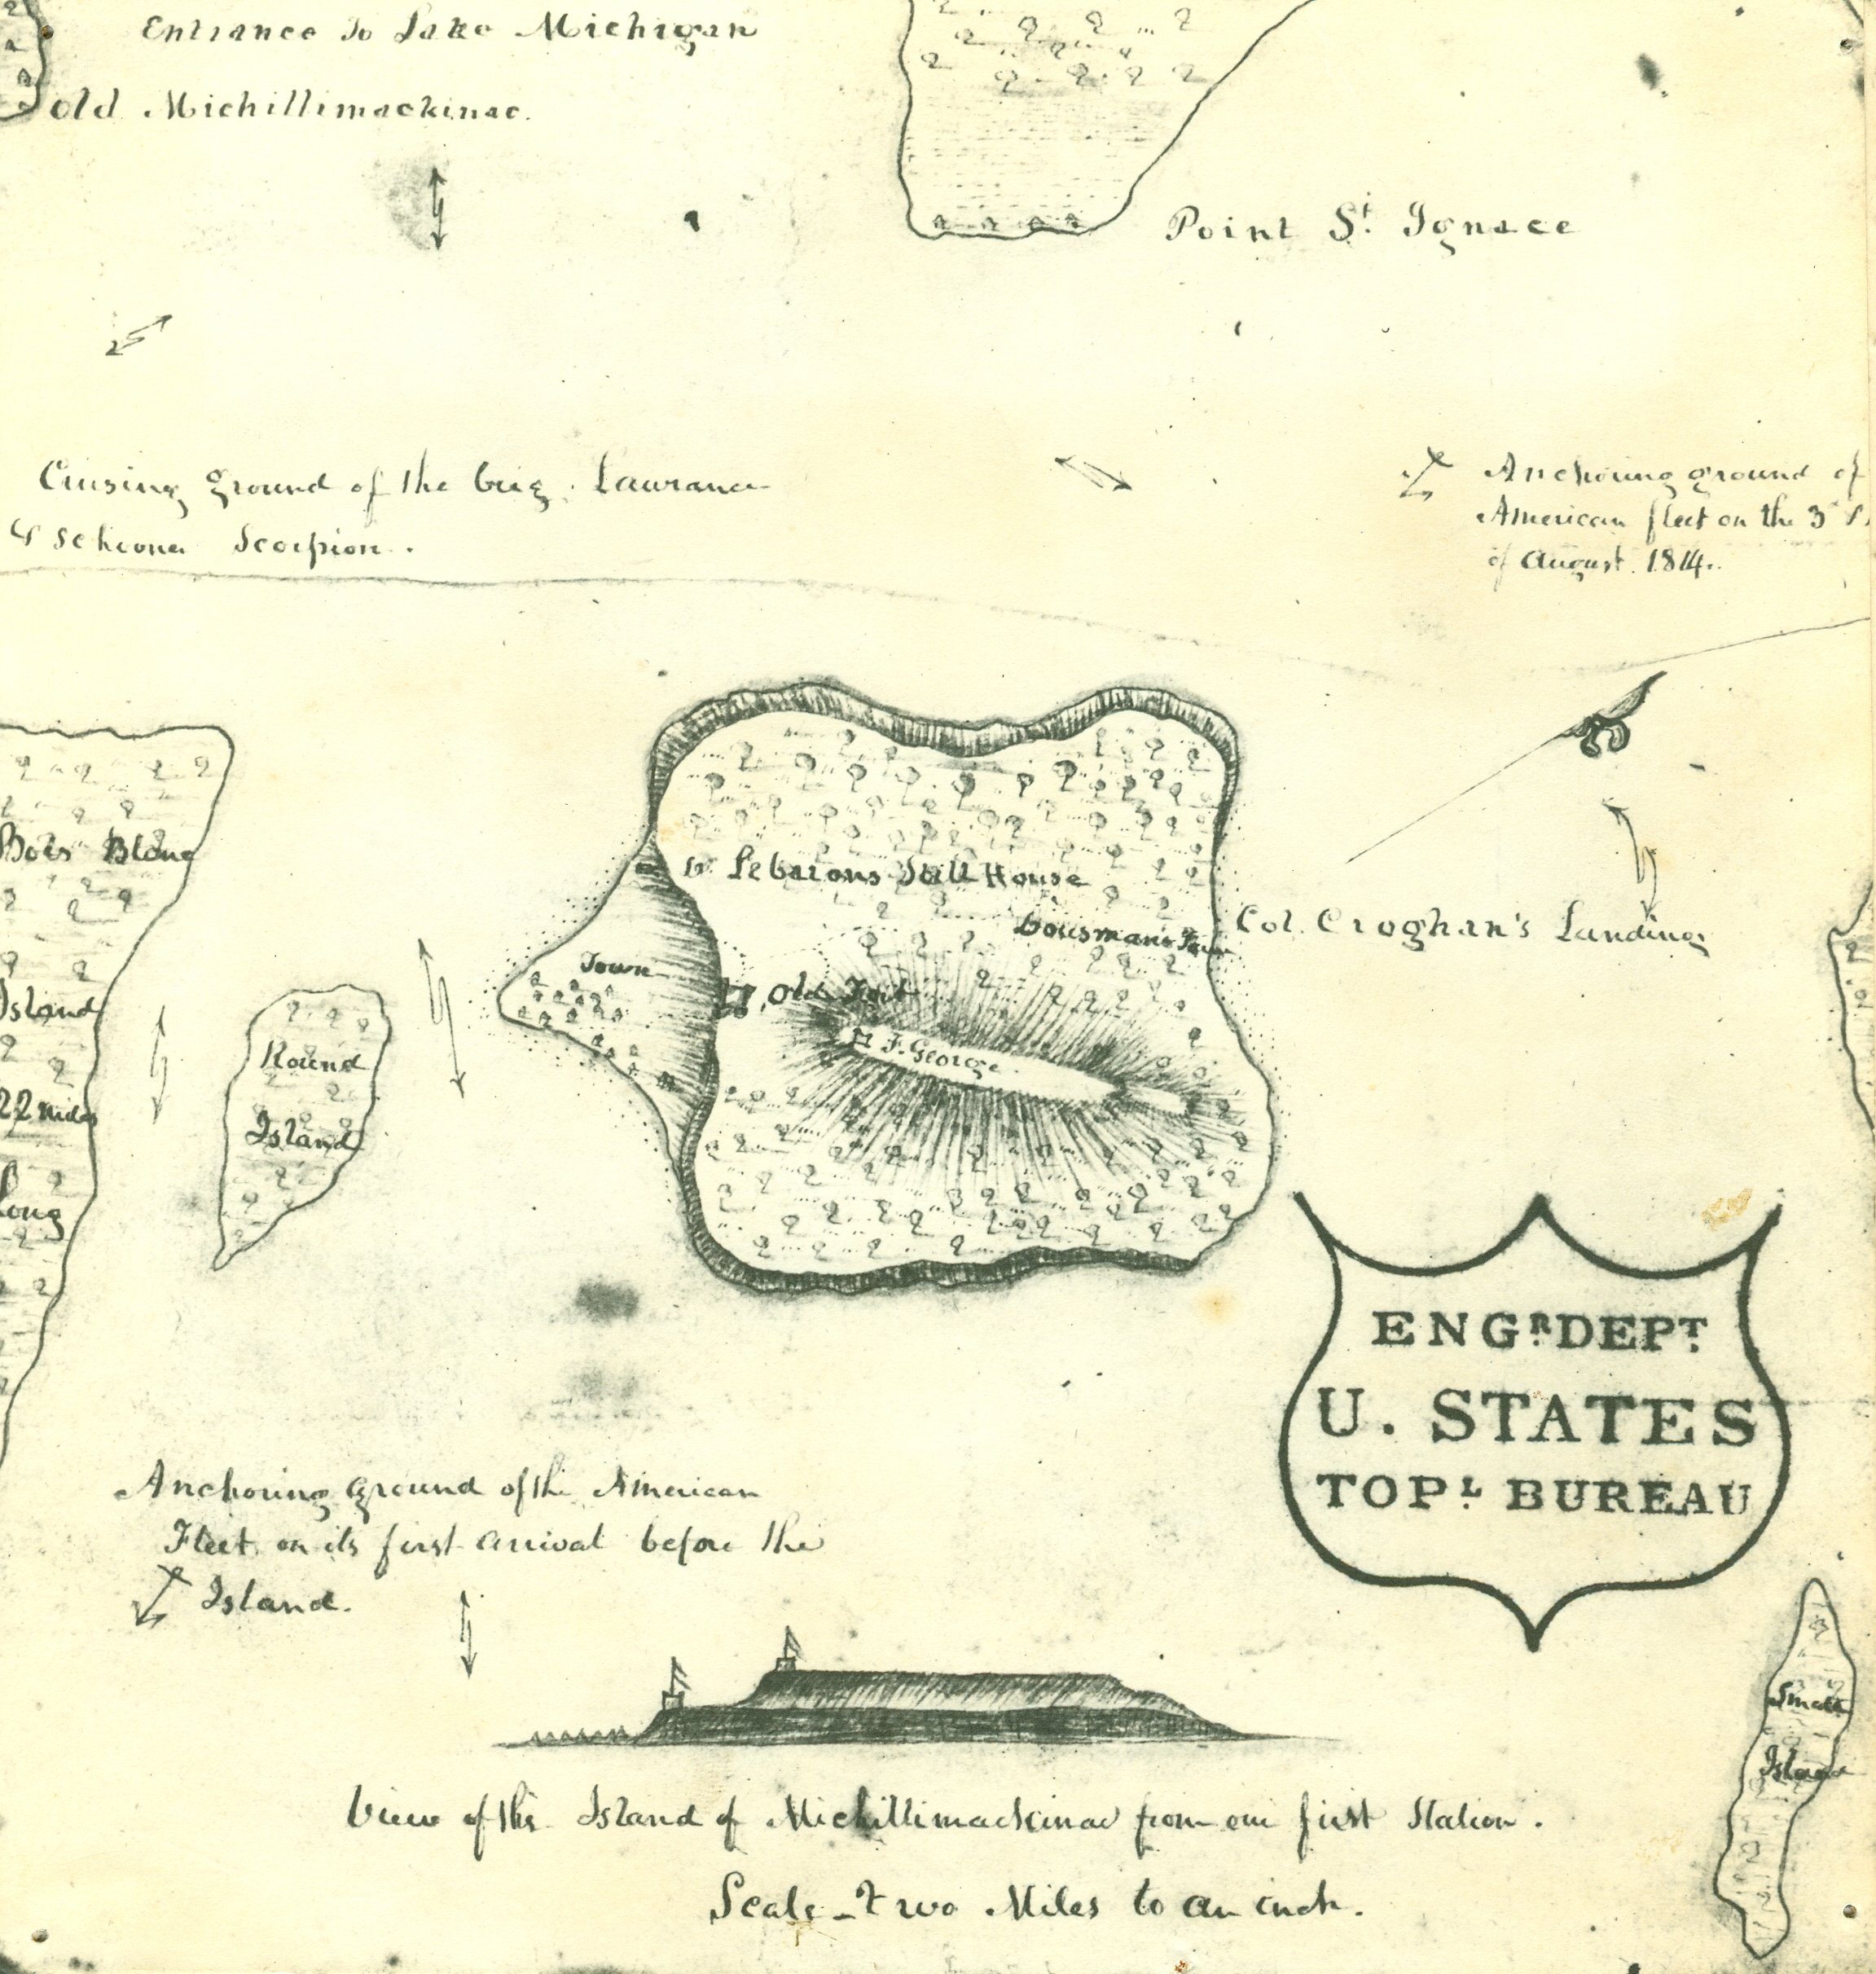 Entrance to Lake Michigan
old Michillimackinac.
Point St. Ignace
Cruising ground of the brig Lawrance
& schooner Scorpion.
Anchoring ground of
American fleet on the 3d
of August 1814.
Bois Blanc
Island
22 miles
Long
Round
Island
Lebarons Still House
Dousmans Farm
Col. Croghan's Landing
Town
Old Fort
F. George
ENGR. DEPT.
U. STATES
TOPL. BUREAU
Anchoring ground of the American
Fleet on its first arrival before the
Island.
Small
Island
View of the Island of Michillimackinac from our first Station.
Scale - Two Miles to an inch.